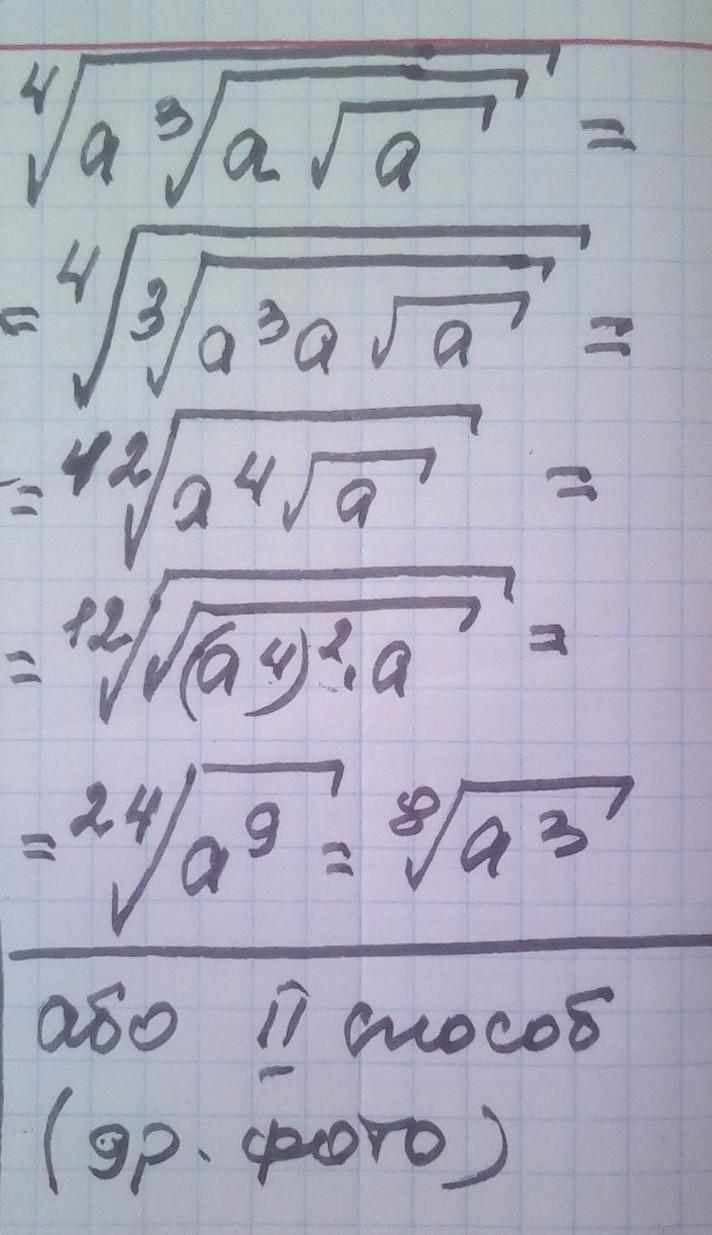 ⁴√(a ³√(a √a)) =
= ⁴√(³√(a³a √a)) =
= ¹²√(a⁴ √a) =
= ¹²√(√((a⁴)²·a)) =
= ²⁴√(a⁹) = ⁸√(a³)
або II способ
(др. фото)